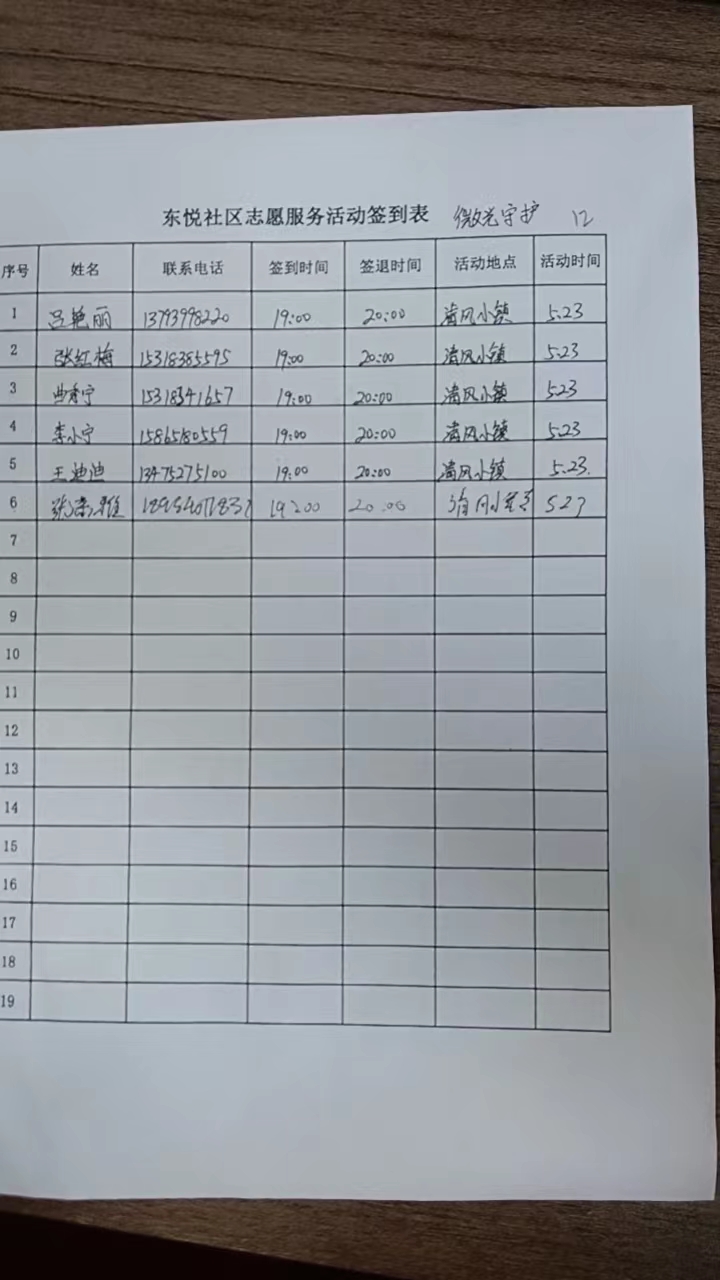 东悦社区志愿服务活动签到表 微光守护 12
序号 姓名 联系电话 签到时间 签退时间 活动地点 活动时间
1 吕艳丽 13793998220 19:00 20:00 清风小镇 5.23
2 张红梅 15318385595 19:00 20:00 清风小镇 5.23
3 曲秀宁 15318341657 19:00 20:00 清风小镇 5.23
4 李小宁 15865180559 19:00 20:00 清风小镇 5.23
5 王迪迪 13475275100 19:00 20:00 清风小镇 5.23.
6 20.00 清风小镇 5.23
7
8
9
10
11
12
13
14
15
16
17
18
19